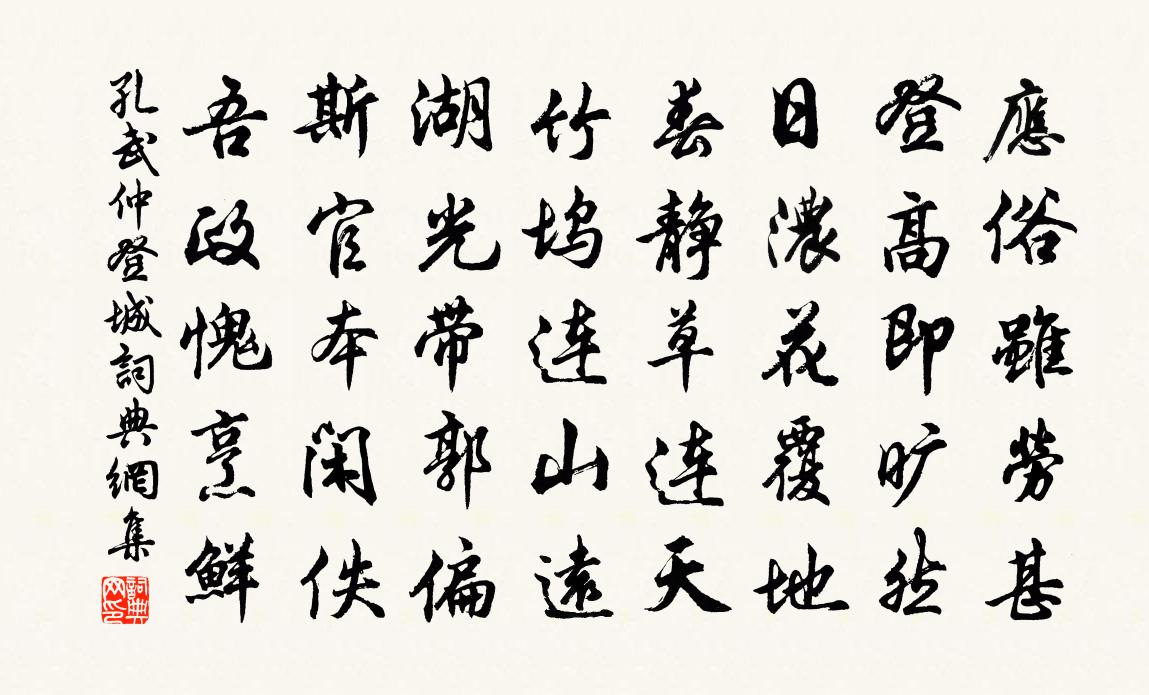 應俗雖勞甚
登高即旷然
日濃花覆地
春靜草连天
竹坞连山遠
湖光带郭偏
斯官本闲佚
吾政愧烹鮮
孔武仲登城詞典網集
詞典网印